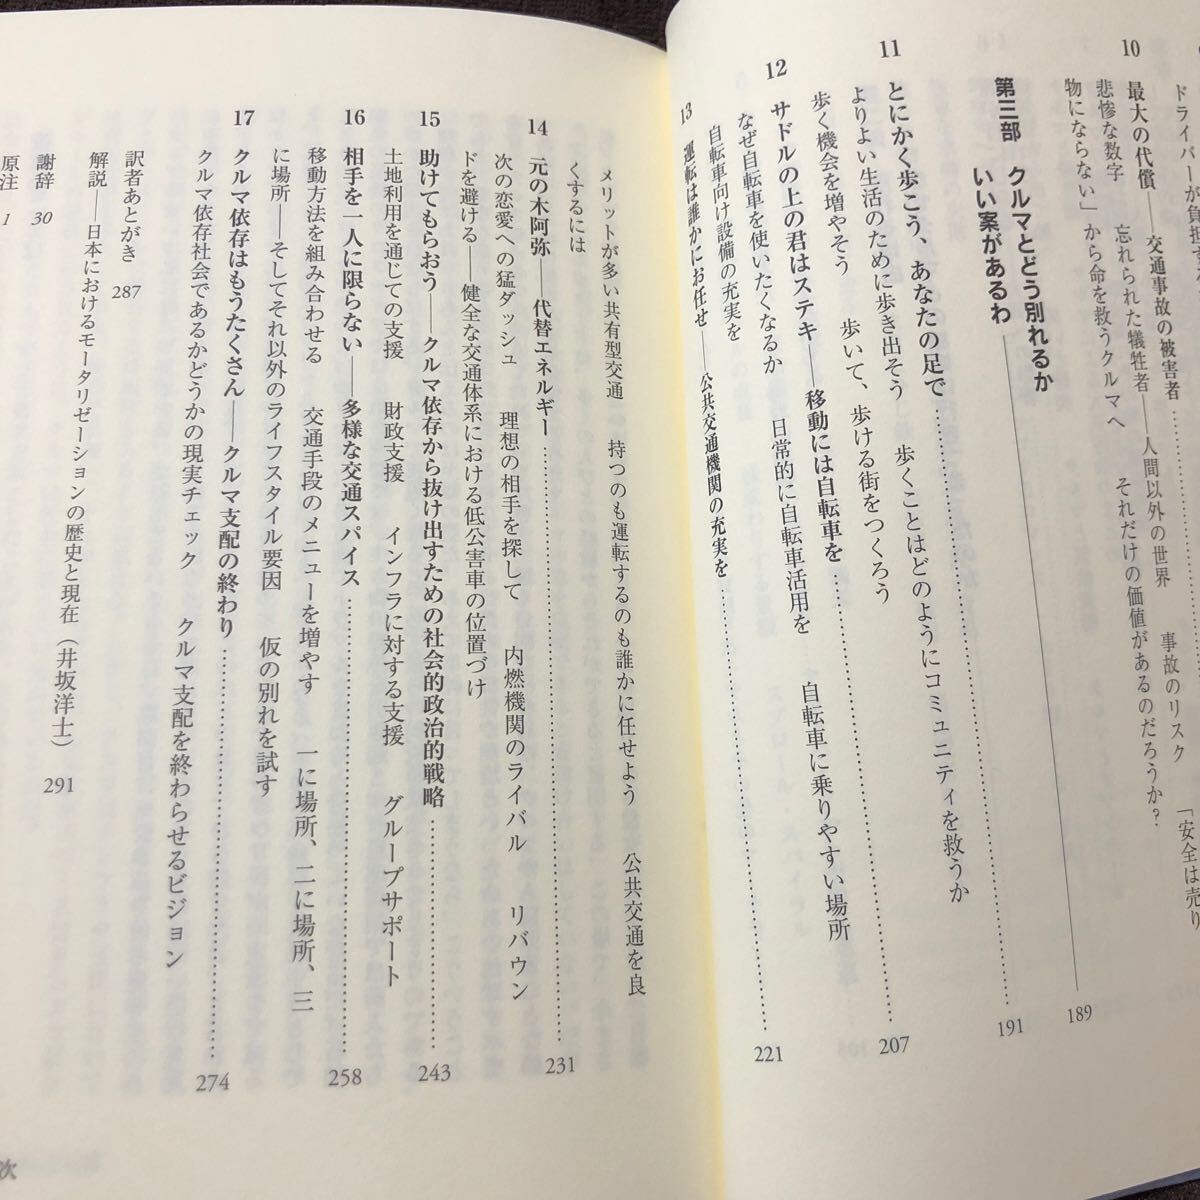 ドライバーが負担す
10 最大の代償――交通事故の被害者
悲惨な数字 忘れられた犠牲者――人間以外の世界 事故のリスク 「安全は売り
物にならない」から命を救うクルマへ それだけの価値があるのだろうか?
189
第三部 クルマとどう別れるか
いい案があるわ 191
11 とにかく歩こう、あなたの足で 207
よりよい生活のために歩き出そう 歩くことはどのようにコミュニティを救うか
歩く機会を増やそう 歩いて、歩ける街をつくろう
12 サドルの上の君はステキ――移動には自転車を
なぜ自転車を使いたくなるか 日常的に自転車活用を 自転車に乗りやすい場所
自転車向け設備の充実を
13 運転は誰かにお任せ――公共交通機関の充実を 221
メリットが多い共有型交通 持つのも運転するのも誰かに任せよう 公共交通を良
くするには
14 元の木阿弥――代替エネルギー 231
次の恋愛への猛ダッシュ 理想の相手を探して 内燃機関のライバル リバウン
ドを避ける――健全な交通体系における低公害車の位置づけ
15 助けてもらおう――クルマ依存から抜け出すための社会的政治的戦略 243
土地利用を通じての支援 財政支援 インフラに対する支援 グループサポート
16 相手を一人に限らない――多様な交通スパイス 258
移動方法を組み合わせる 交通手段のメニューを増やす 一に場所、二に場所、三
に場所――そしてそれ以外のライフスタイル要因 仮の別れを試す
17 クルマ依存はもうたくさん――クルマ支配の終わり 274
クルマ依存社会であるかどうかの現実チェック クルマ支配を終わらせるビジョン
訳者あとがき 287
解説――日本におけるモータリゼーションの歴史と現在(井坂洋士) 291
謝辞 30
原注 1
次